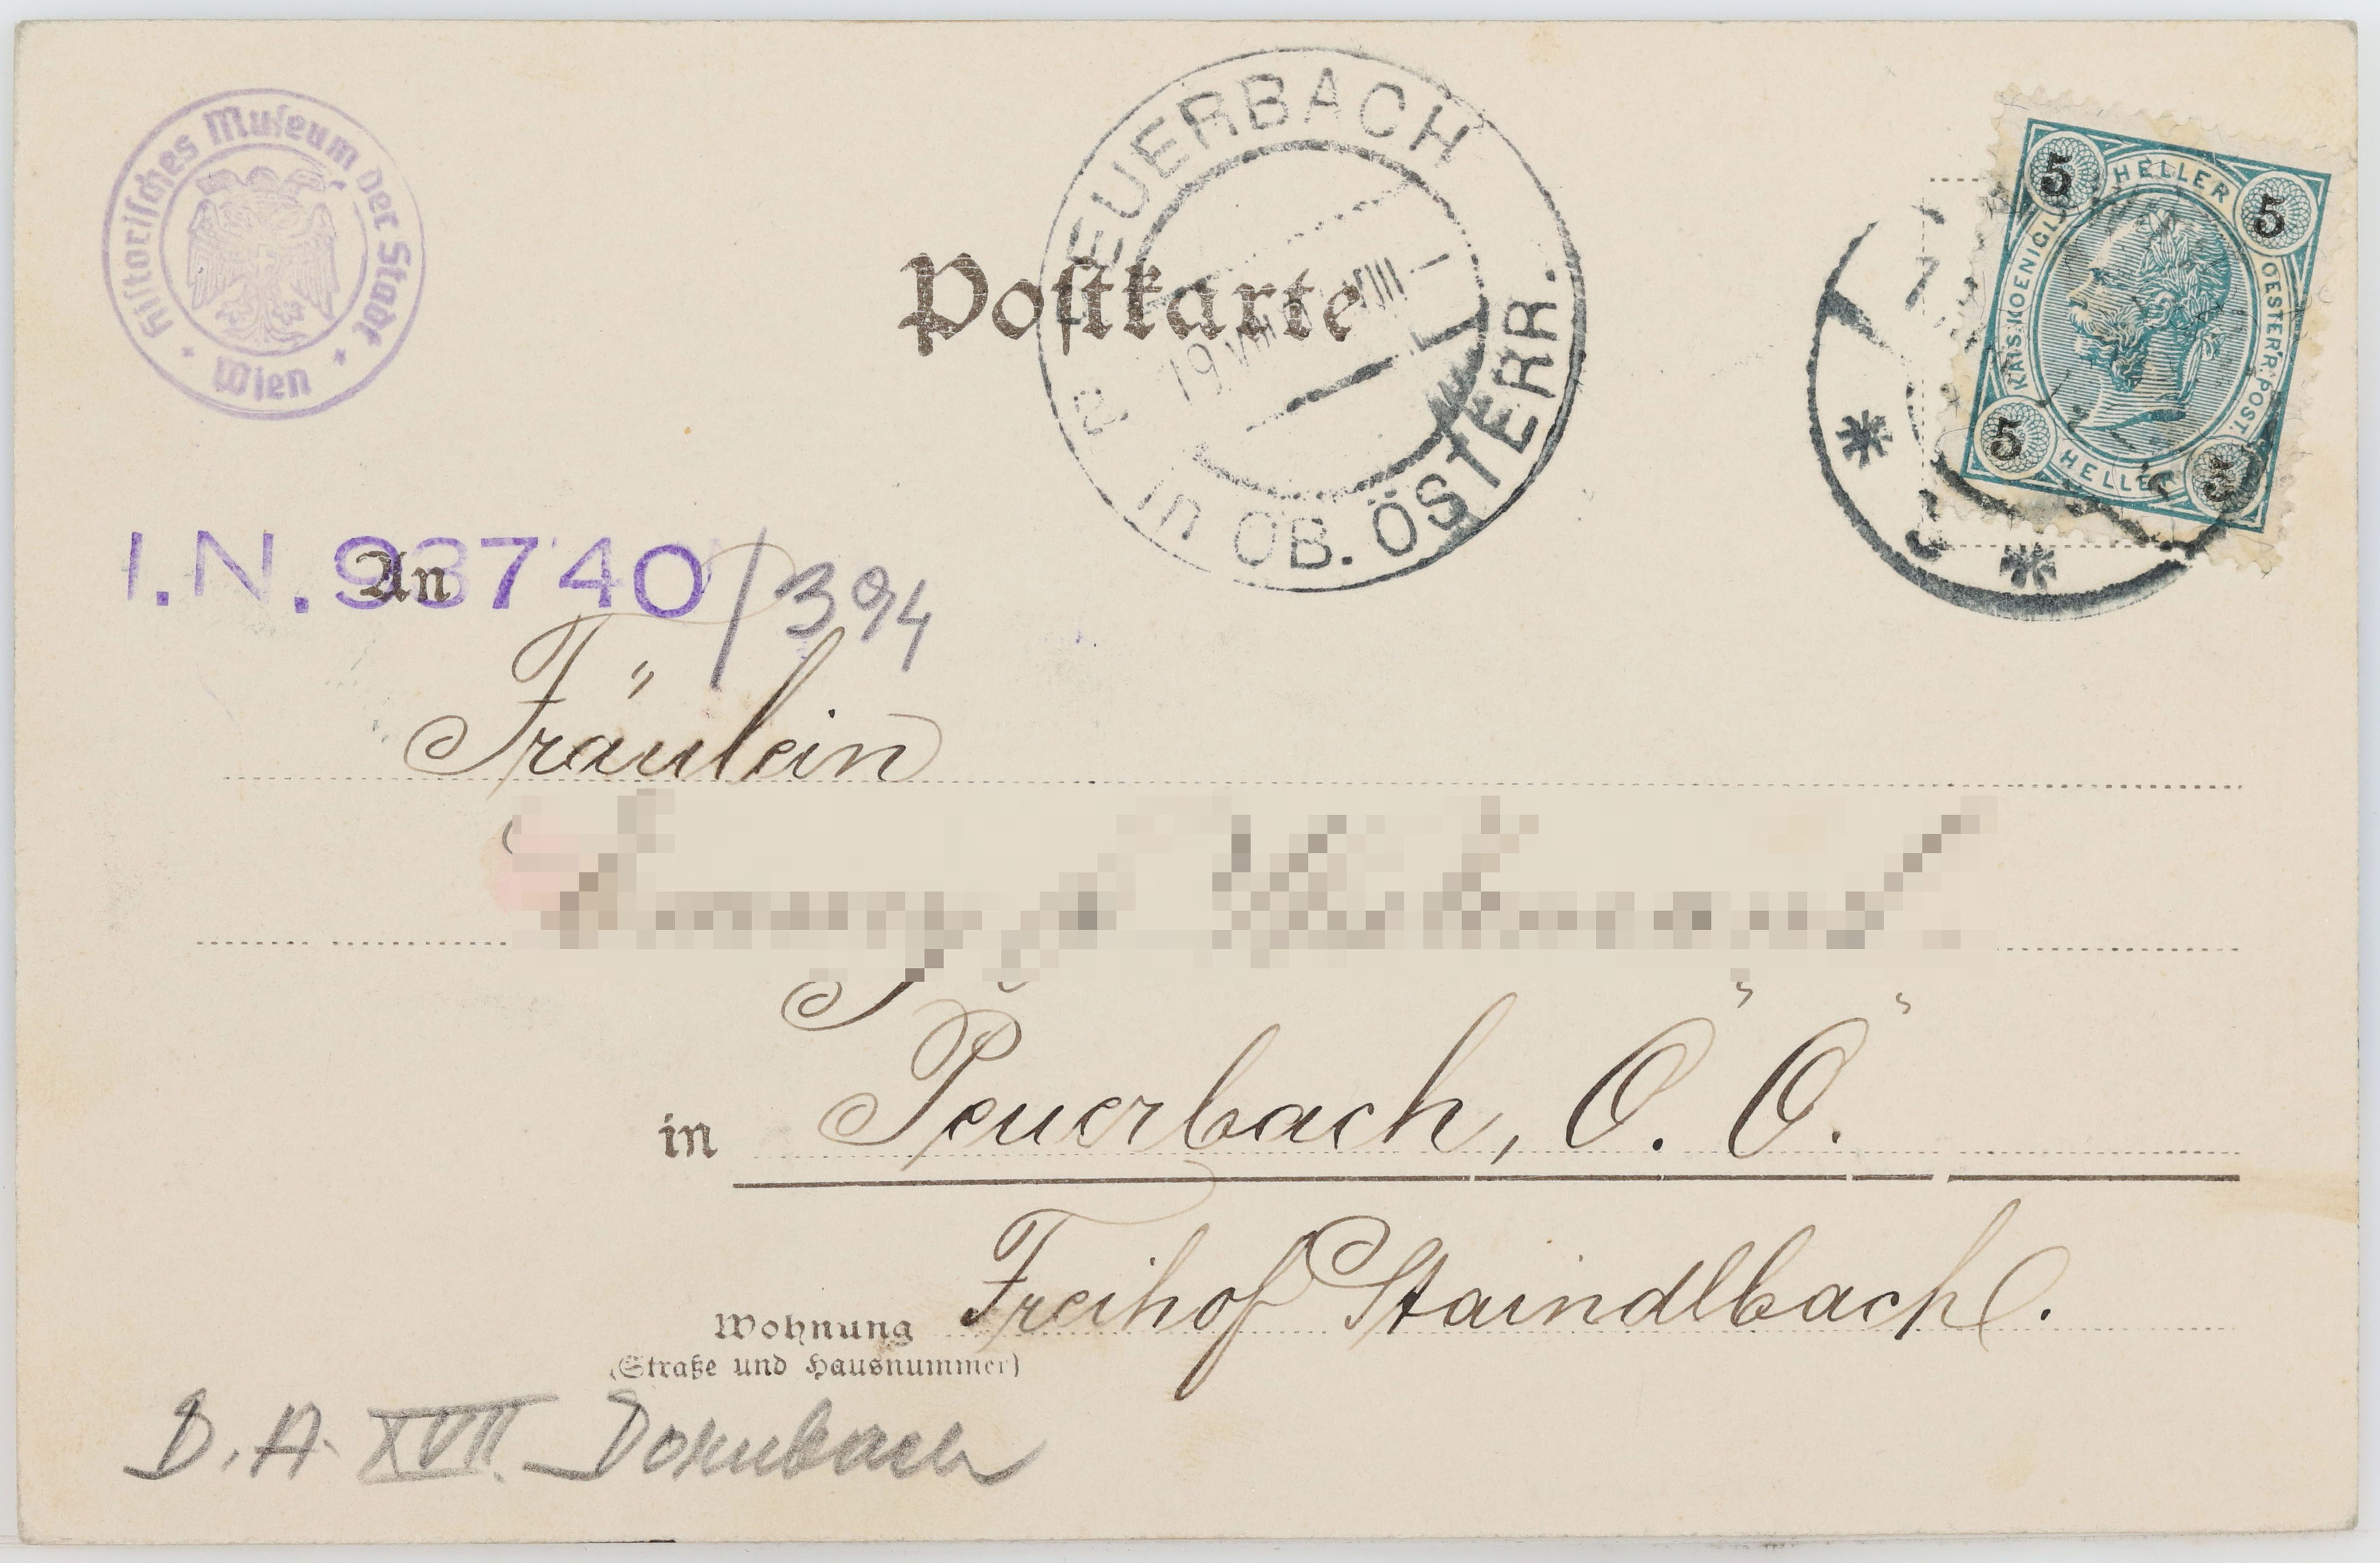 Historisches Museum der Stadt
Wien
EUERBACH
OB. ÖSTERR.
5 HELLER 5
KAIS. KOENIGL. OESTERR. POST.
5 HELLER 5
Postkarte
I.N. 93740/394
An
Fräulein
in Peuerbach, O. Ö.
Wohnung Freihof Staindlbach.
(Straße und Hausnummer)
B.A. XVII. Dornbach